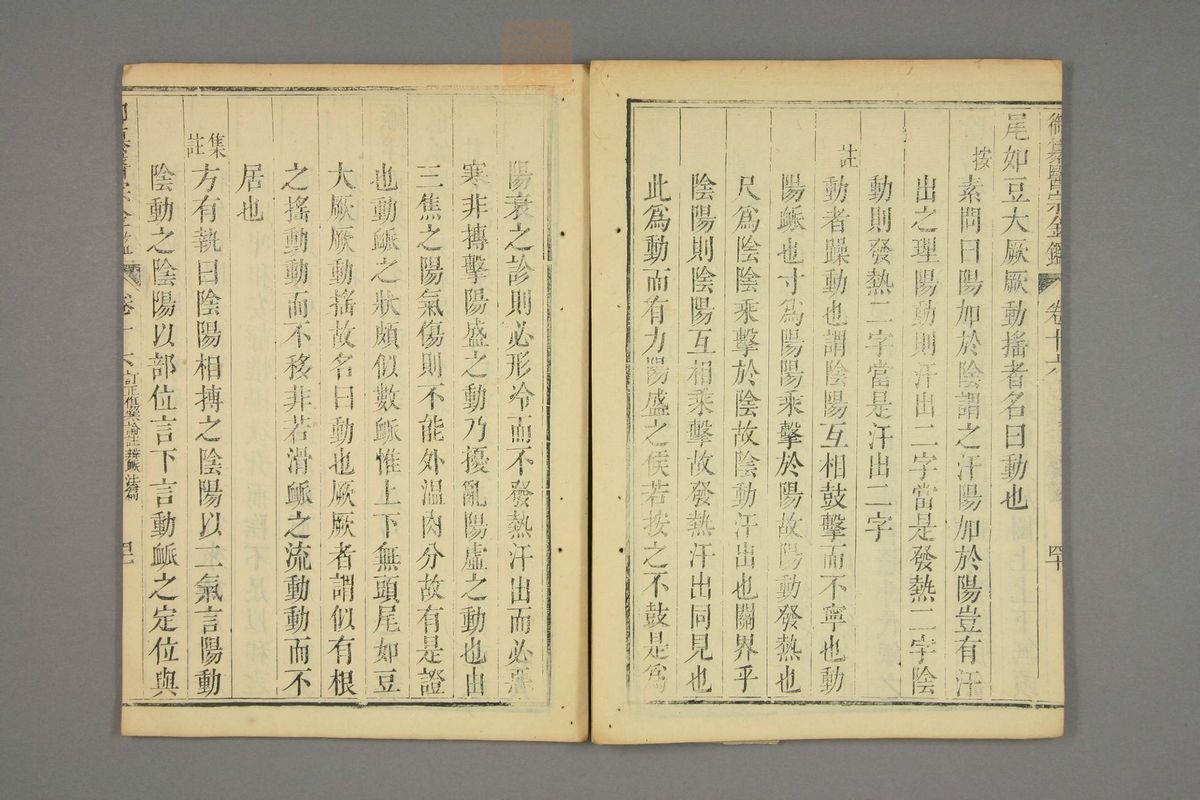 御纂醫宗金鑑 卷十六 四十
尾如豆大厥厥動搖者名曰動也
按 素問曰陽加於陰謂之汗陽加於陽豈有汗
出之理陽動則汗出二字當是發熱二字陰
動則發熱二字當是汗出二字
註 動者躁動也謂陰陽互相鼓擊而不寧也動
陽脈也寸爲陽陽乘擊於陽故陽動發熱也
尺爲陰陰乘擊於陰故陰動汗出也關界乎
陰陽則陰陽互相乘擊故發熱汗出同見也
此爲動而有力陽盛之候若按之不鼓是爲
陽衰之診則必形冷而不發熱汗出而必惡
寒非摶擊陽盛之動乃擾亂陽虛之動也由
三焦之陽氣傷則不能外溫肉分故有是證
也動脈之狀頗似數脈惟上下無頭尾如豆
大厥厥動搖故名曰動也厥厥者謂似有根
之搖動動而不移非若滑脈之流動動而不
居也
集註 方有執曰陰陽相搏之陰陽以二氣言陽動
陰動之陰陽以部位言下言動脈之定位與
卷十六 訂正傷寒論註 辨脈法篇